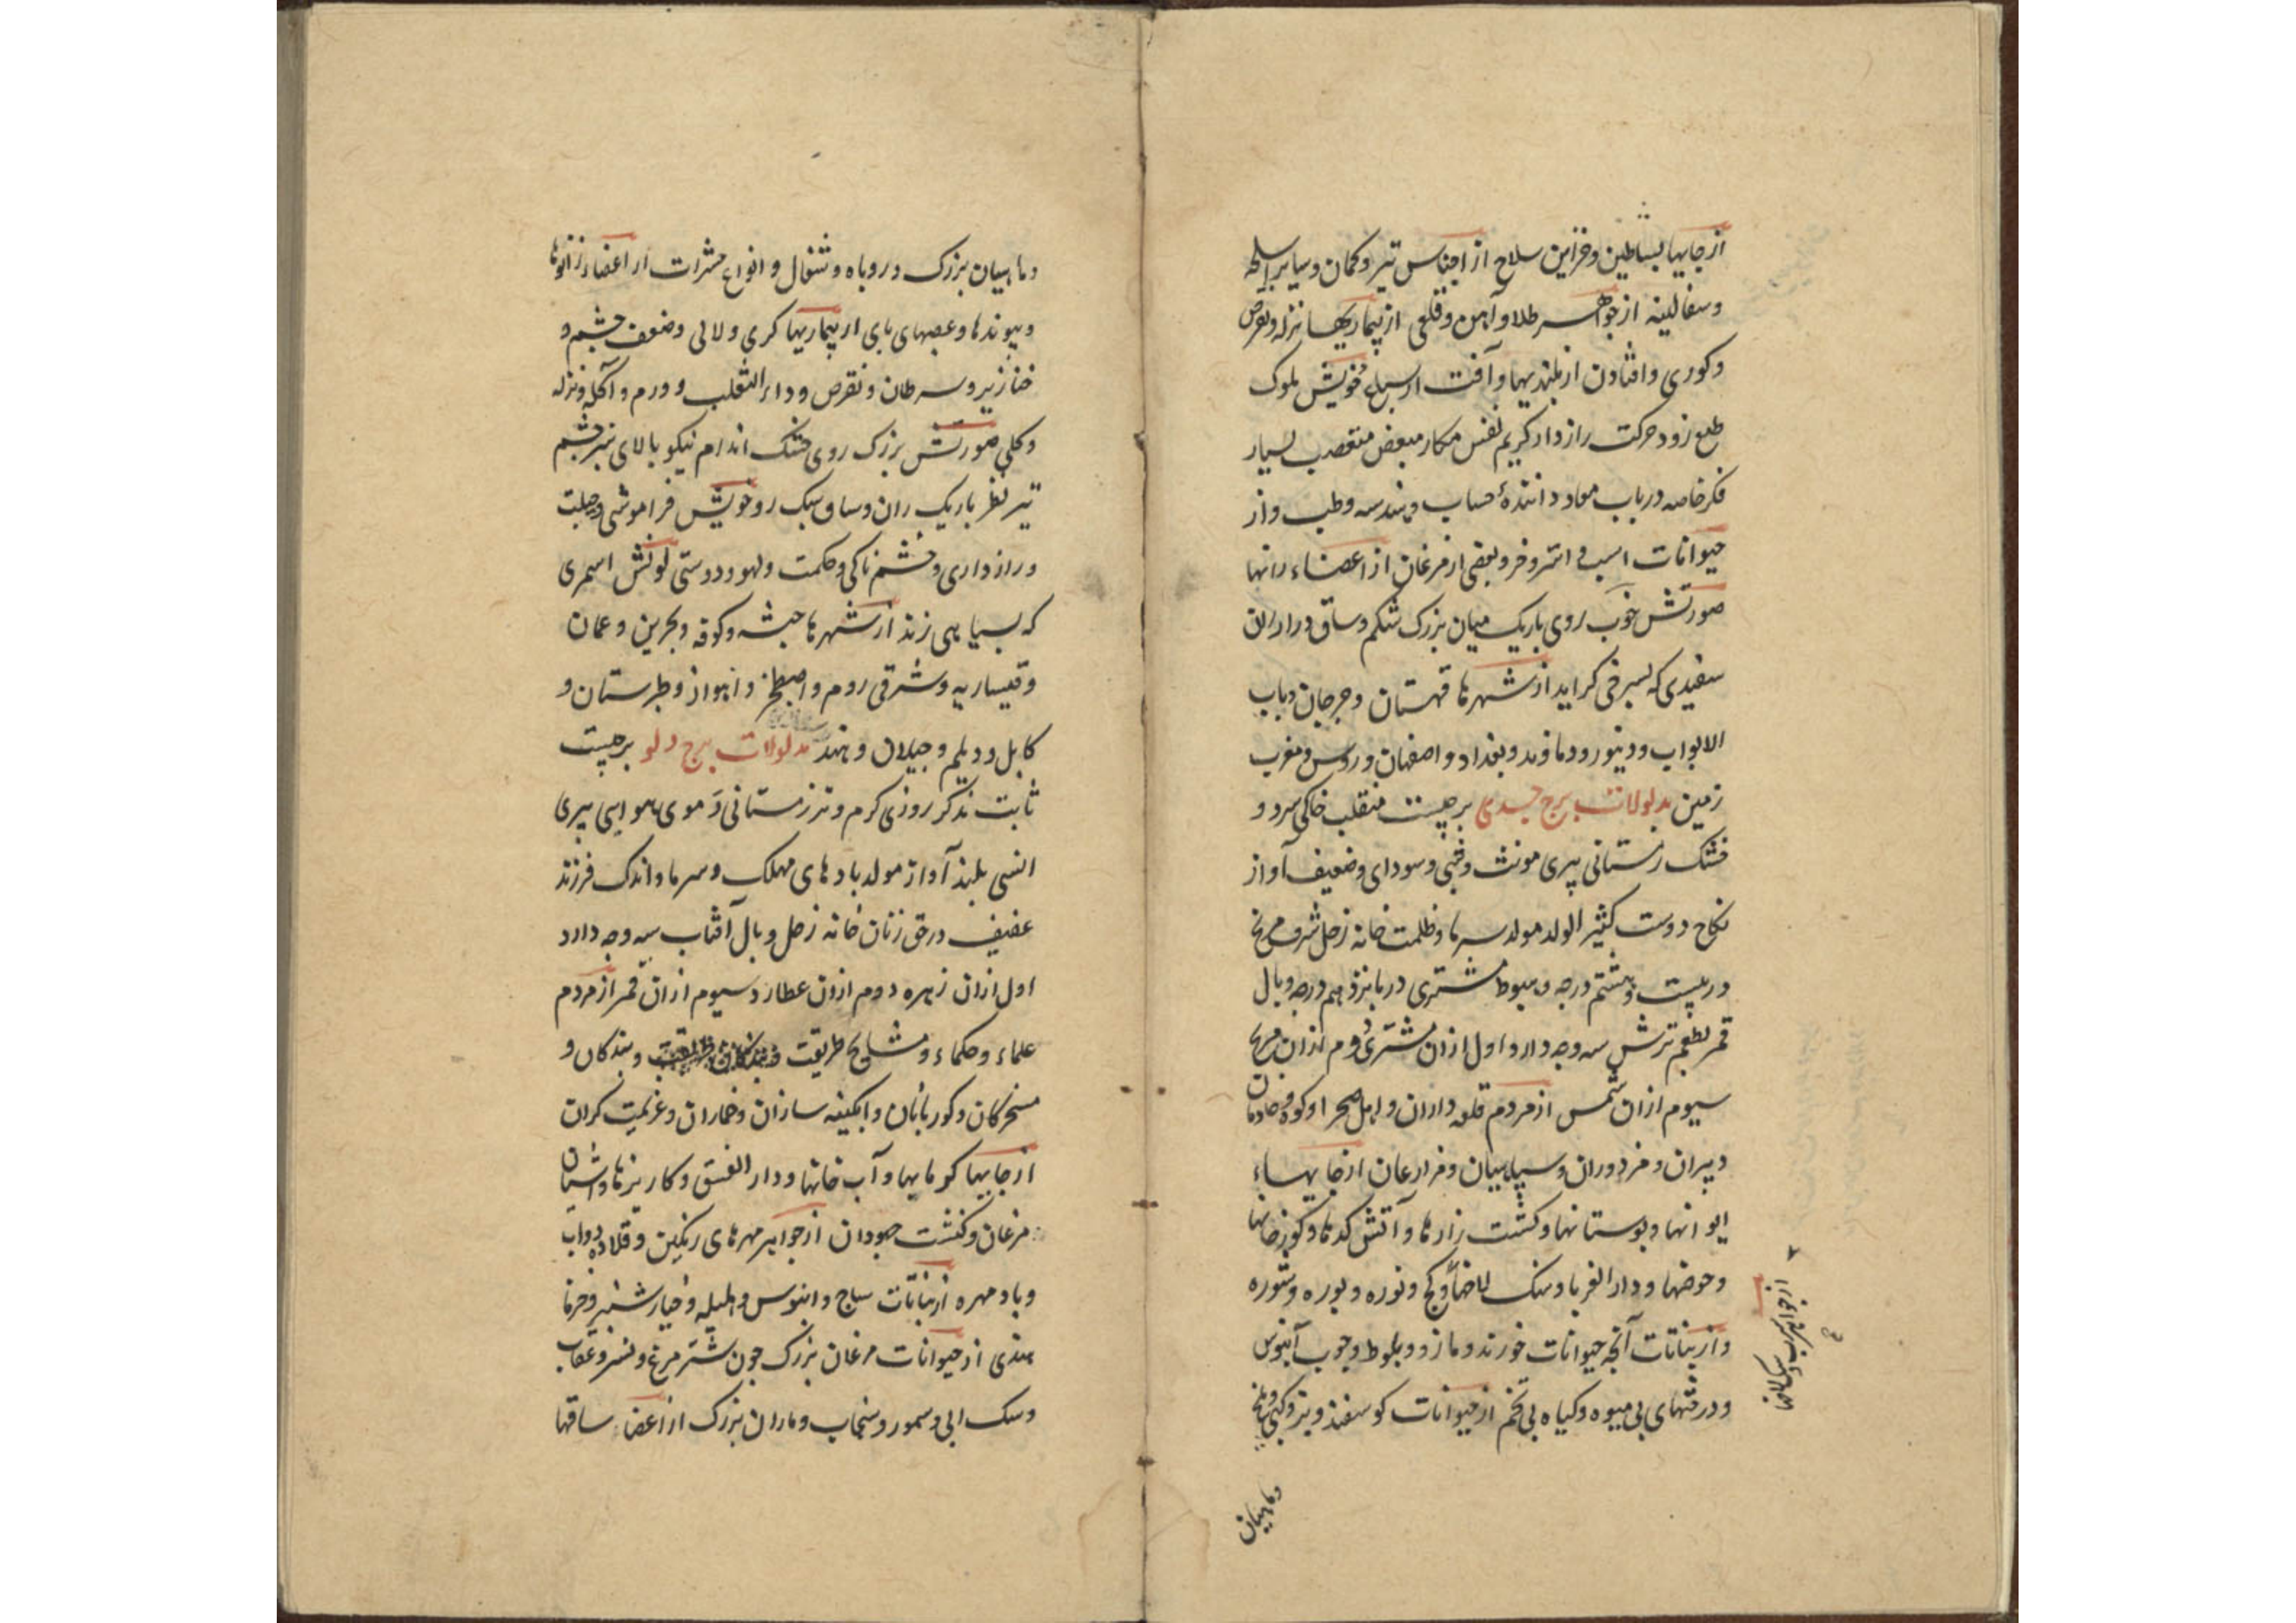 از جایها بساطین و خزاین سلاح از اجناس تیر و کمان و سایر اسلحه
و سفالینه از جواهر طلا و آهن و قلعی از بیماریها نزله و نقرص
و کوری و افتادن از بلندیها و آفت از سباع خویش ملوک
طبع زود حرکت رازدار کریم نفس مکار مبغض متعصب بسیار
فکر خاصه در باب معاد دانندهٔ حساب و هندسه و طب و از
حیوانات اسب و استر و خر و بعضی از مرغان از اعضاء رانها
صورتش خوب روی باریک میان بزرک شکم و ساق و دراز
سفیدی که بسرخی کراید از شهرها قهستان و جرجان و باب
الابواب و دینور و دماوند و بغداد و اصفهان و روس و مغرب
زمین مدلولات برج جدی برجیست منقلب خاکی سرد و
خشک زمستانی پیری مونث و شبی و سودای و ضعیف آواز
نکاح دوست کثیر الولد مولد سرما و ظلمت خانه زحل شرف مریخ
در بیست و هشتم درجه و هبوط مشتری در پانزدهم درجه وبال
قمر بطعم ترش سه وجه دارد اول ازان مشتری دوم ازان مریخ
سیوم ازان شمس از مردم قلعه داران و اهل صحرا و کوه و خادمان
دبیران و مزدوران و سپاهیان و مزارعان از جایهاء
ایوانها و بوستانها و کشت زارها و آتش کدها و
و حوضها و دار الغربا و سنک و کج و نوره و بوره و شوره
و از نباتات آنچه حیوانات خورند و مازو و بلوط و چوب آبنوس
و درختهای بی میوه و کیاه بی تخم از حیوانات کوسفند و بز و
و ماهیان
و ماهیان بزرک و روباه و شغال و انواع حشرات از اعضاء زانوها
و پیوندها و عصبهای پای از بیماریها کری و لالی و ضعف چشم و
خنازیر و سرطان و نقرص و داء الثعلب و ورم و آکله و نزله
و کلی صورتش بزرک روی خشک اندام نیکو بالای تیر چشم
تیر نظر باریک ران و ساق سبک رو خویش فراموشی و حیلت
و رازداری و خشم ناکی و حکمت و لهو و دوستی لونش اسمری
که بسیاهی زند از شهرها حبشه و کوفه و بحرین و عمان
و قیساریه و شرقی روم و اصطخر و اهواز و طبرستان و
کابل و دیلم و جیلان و هند مدلولات برج دلو برجیست
ثابت مذکر روزی کرم و تر زمستانی دموی هوایی پیری
انسی بلند آواز مولد بادهای مهلک و سرما و اندک فرزند
عفیف در حق زنان خانه زحل وبال آفتاب سه وجه دارد
اول ازان زهره دوم ازان عطارد سیوم ازان قمر از مردم
علماء و حکماء و مشایخ طریقت و بندکان و
مسخرکان و کوربانان و ابکینه سازان و خماران و عزیمت کران
از جایها کوماپها و آب خانها و دار الفسق و کاریزها و اشیان
مرغان و کنشت جهودان از جواهر مهرهای رنکین و قلاده دواب
و بادمهره از نباتات ساج و ابنوس و هلیله و خیارشنبر و خرما
هندی از حیوانات مرغان بزرک چون شتر مرغ و نسر و عقاب
و سک ابی و سمور و سنجاب و ماران بزرک از اعضاء ساقها